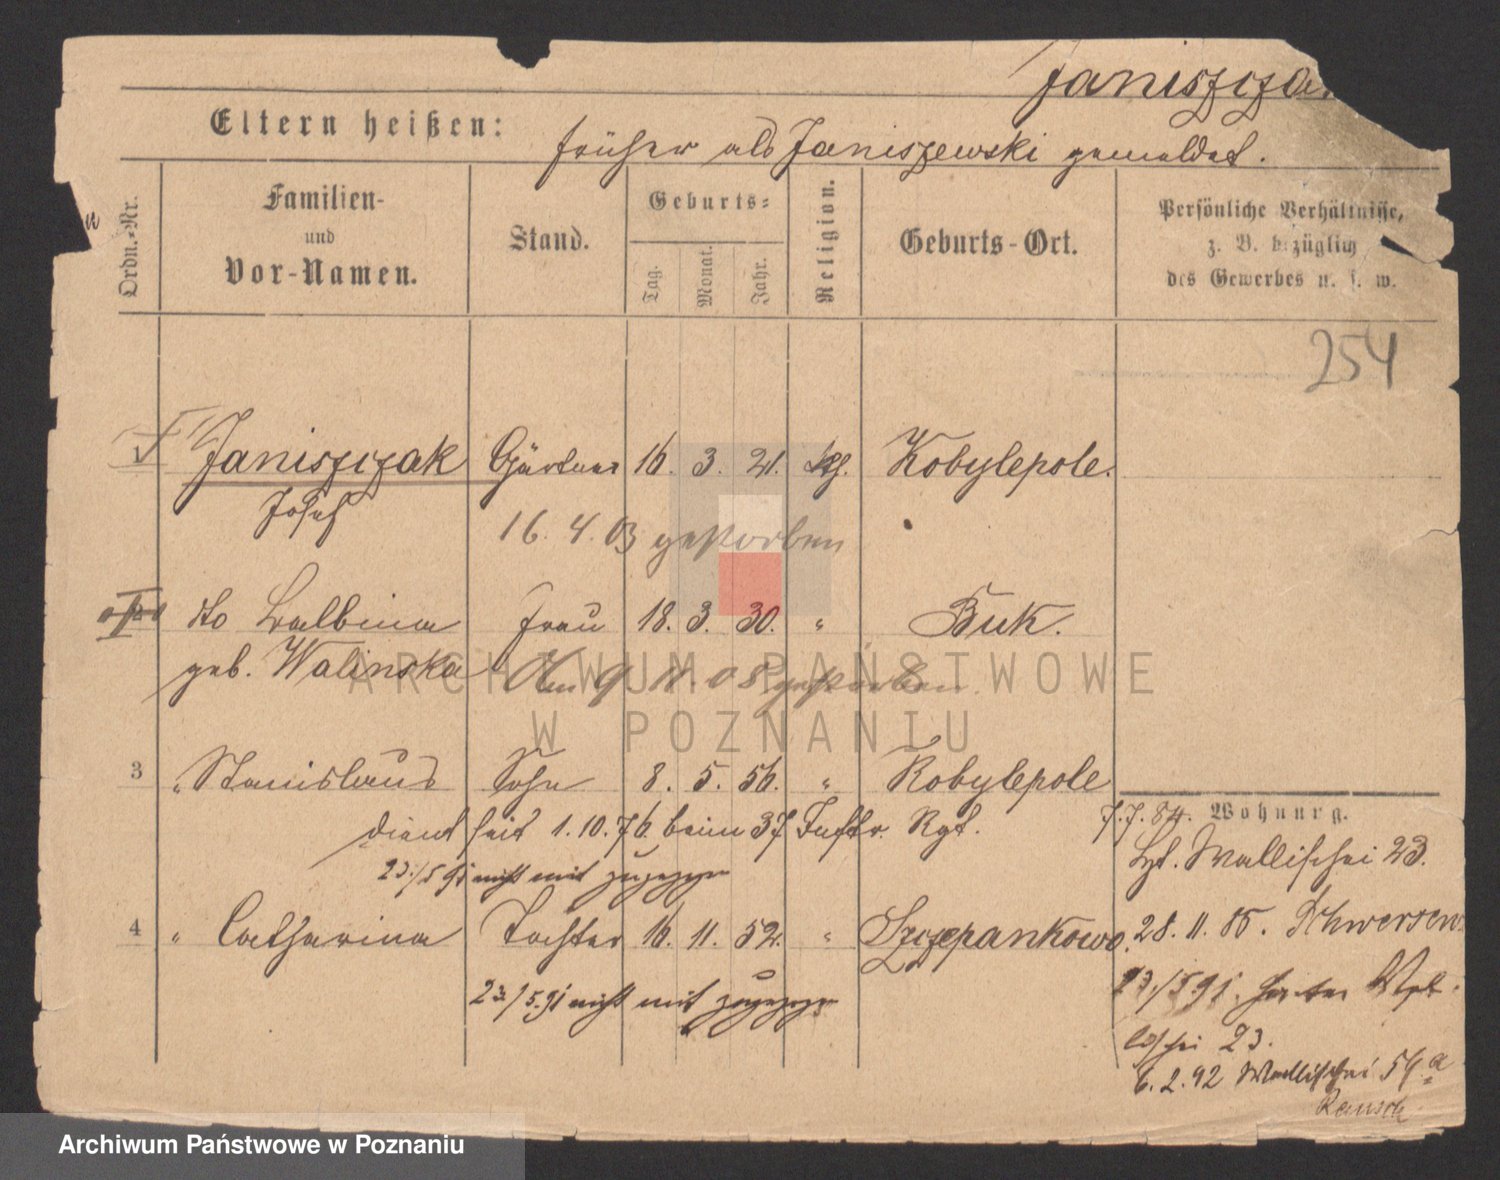 Janiszcza
Eltern heißen:
früher als Janiszewski gemeldet.
Ordn.-Nr.
Familien-
und
Vor-Namen.
Stand.
Geburts-
Tag.
Monat.
Jahr.
Religion.
Geburts-Ort.
Persönliche Verhältnisse,
z. B. bezüglich
des Gewerbes u. s. w.
254
1 Janiszczak Gärtner 16. 3. 21. kth. Kobylepole.
Josef
16. 4. 03 gestorben
2 dto Balbina Frau 18. 3. 30. " Buk.
geb. Walinska
Am 9 11. 08 gestorben.
ARCHIWUM PAŃSTWOWE
W POZNANIU
3 " Stanislaus Sohn 8. 5. 56. " Kobylepole
dient seit 1. 10. 76. beim 37 Inftr. Rgt.
23./5 91 nicht mit zugezogen
4 " Catharina Tochter 16. 11. 52. " Szczepankowo.
23./5. 91 nicht mit zugezogen
Wohnung.
7. 7. 84. Wallischei 23.
28. 11. 85. Schwersen
23./5 91.
23.
6. 2. 92 Wallischei 54a
Rausch
Archiwum Państwowe w Poznaniu